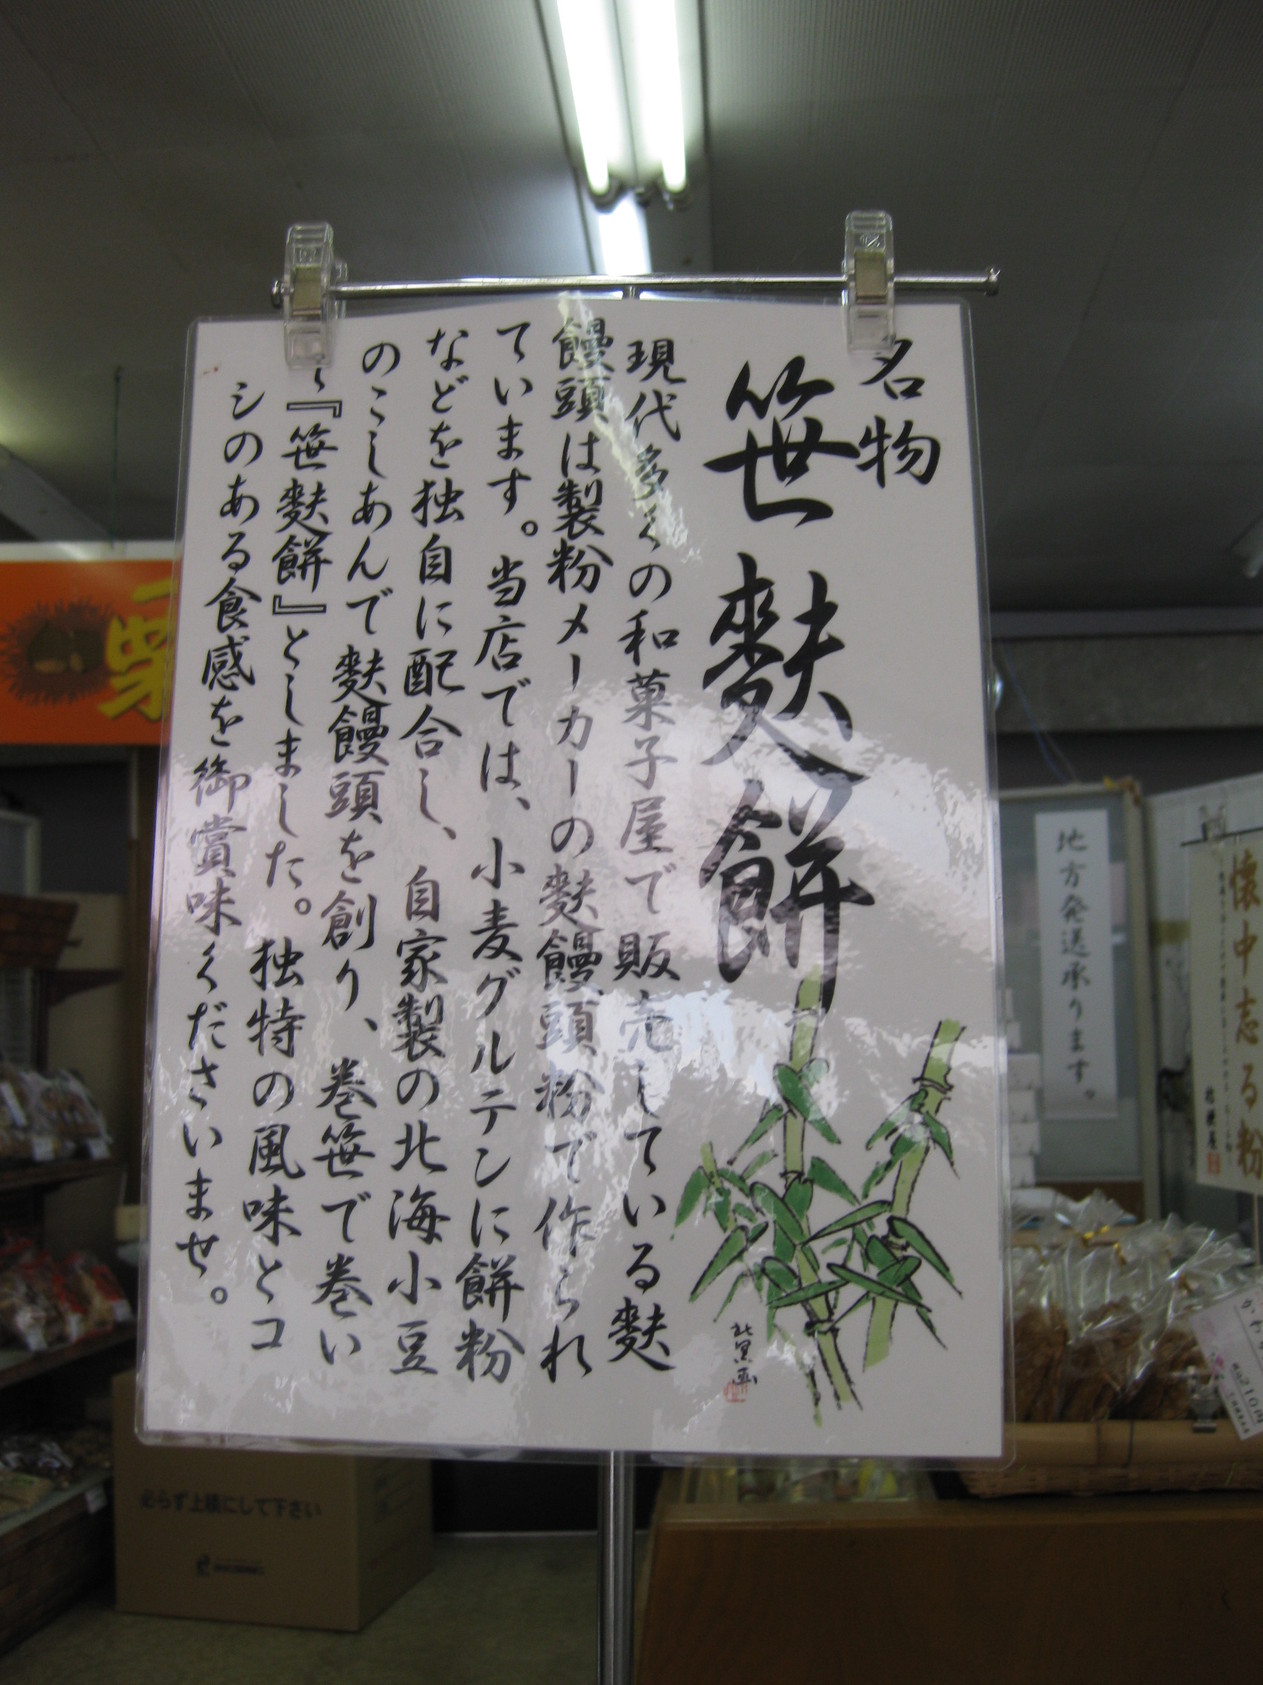 名物
笹麩餅
現代多くの和菓子屋で販売している麩
饅頭は製粉メーカーの麩饅頭粉で作られ
ています。当店では、小麦グルテンに餅粉
などを独自に配合し、自家製の北海小豆
のこしあんで麩饅頭を創り、巻笹で巻い
『笹麩餅』としました。独特の風味とコ
シのある食感を御賞味くださいませ。
地方発送承ります。
懐中志る粉
栗
必ず上積にして下さい
210円